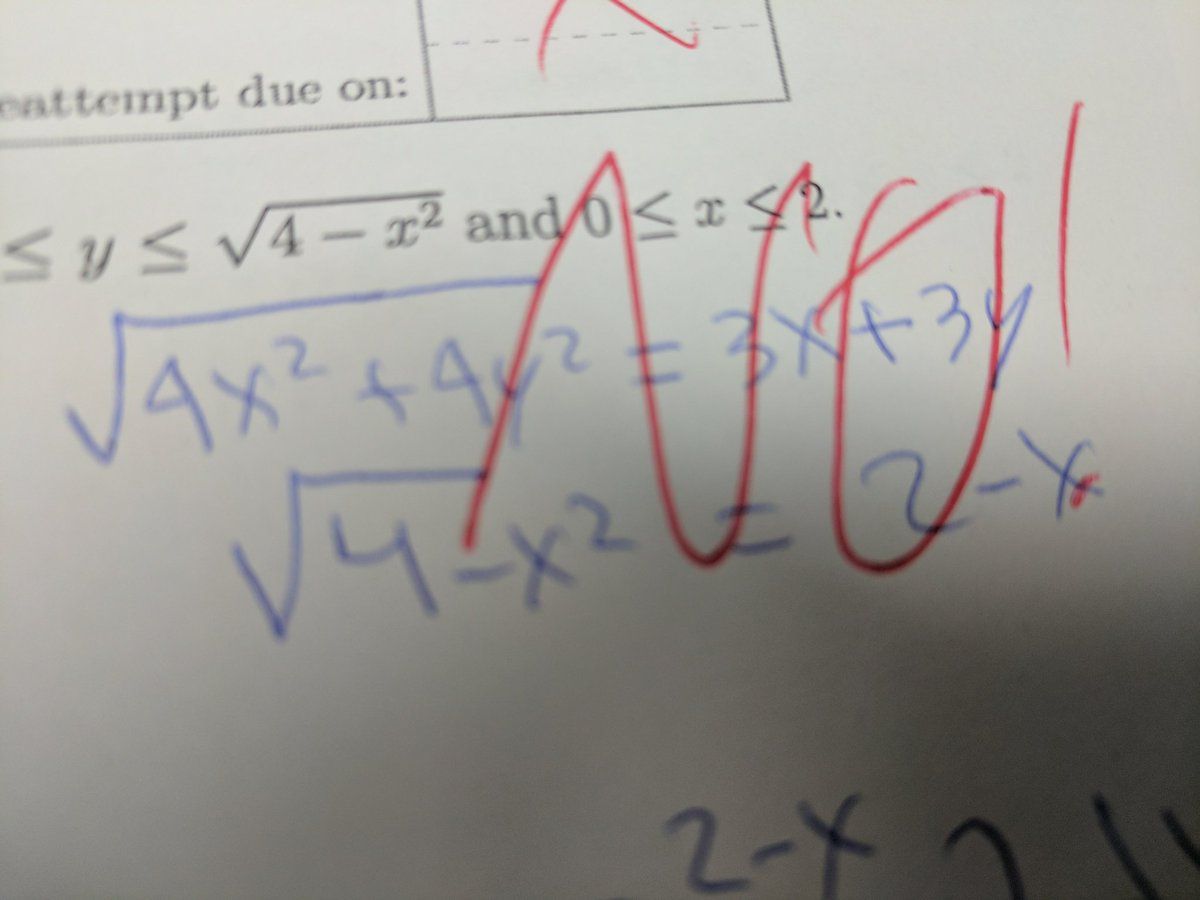 eattempt due on:
≤ y ≤ √4 − x² and 0 ≤ x ≤ 2.
√4x² + 4y² = 3x + 3y
√4 - x² = 2 - x
NO!
2 - x